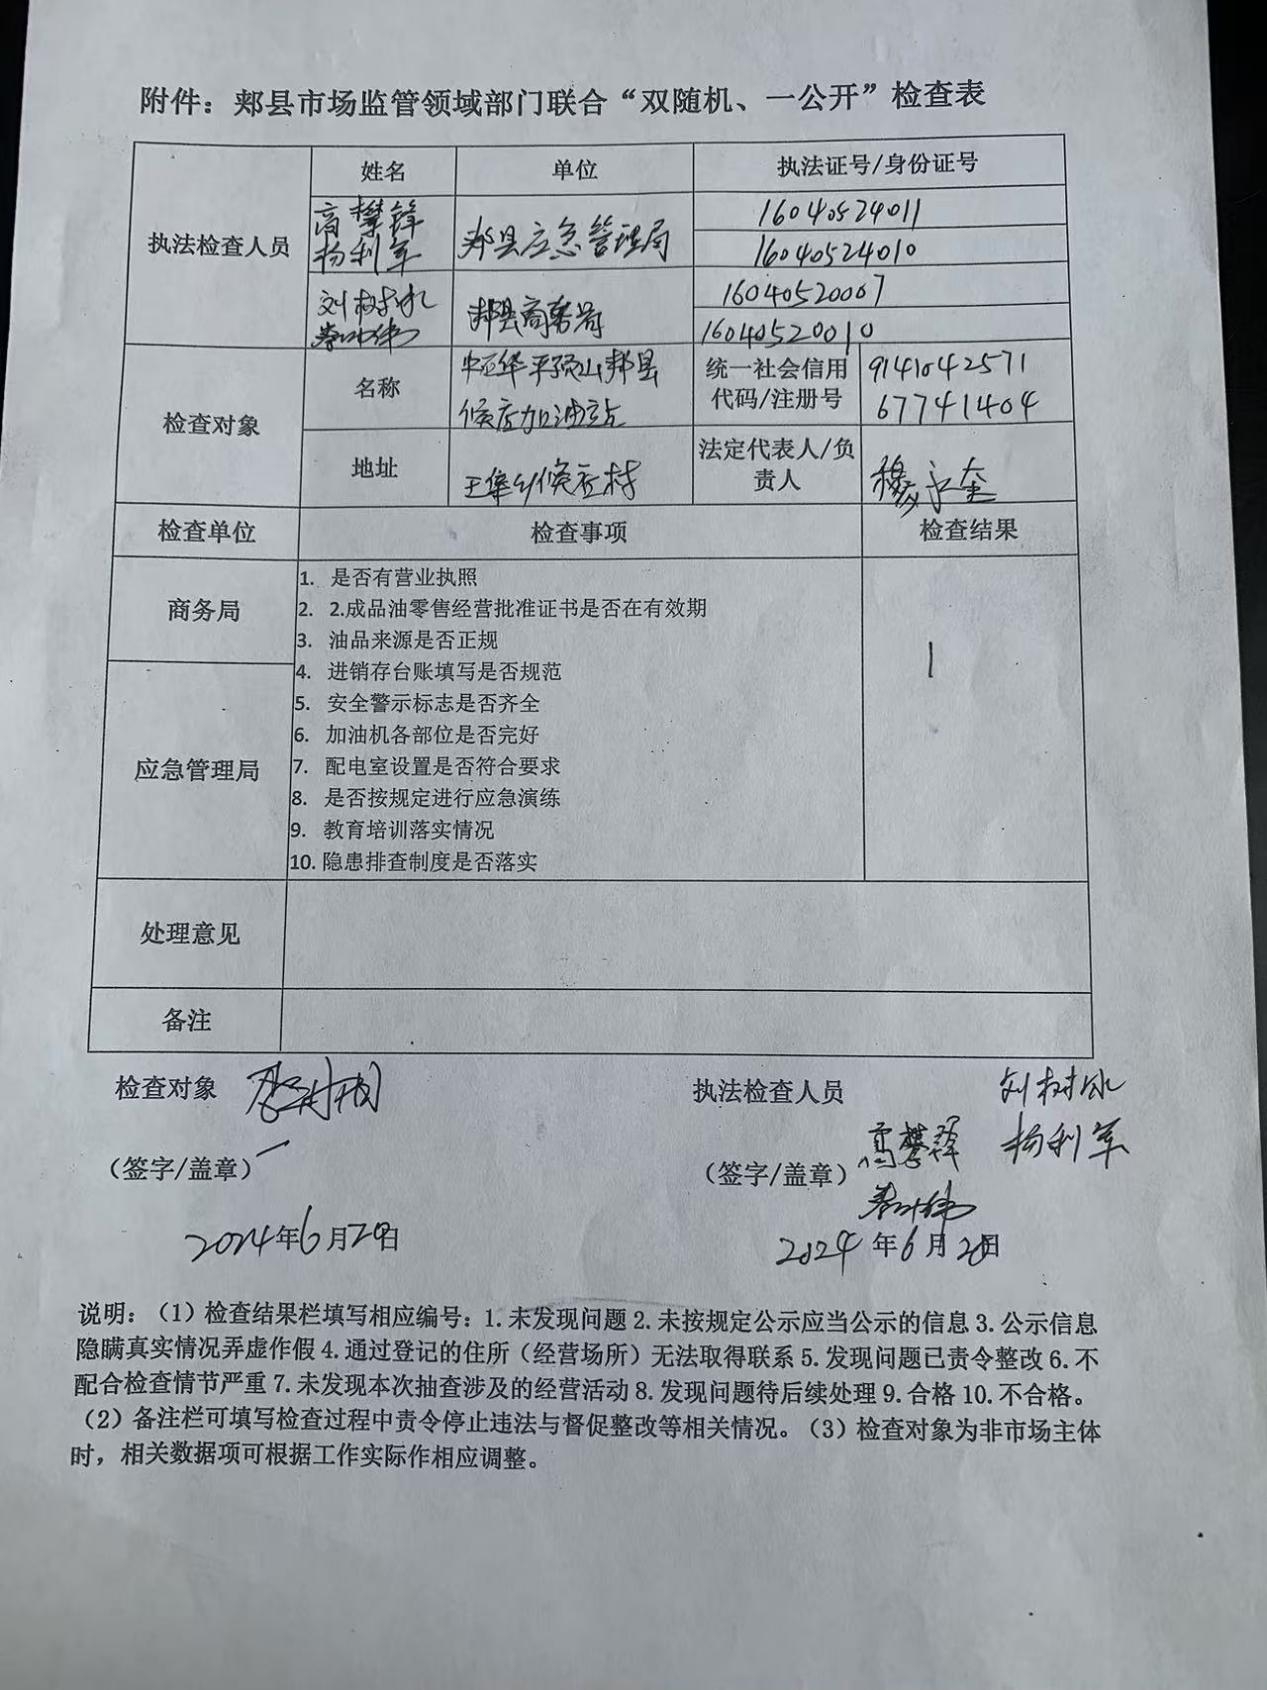 附件：郏县市场监管领域部门联合“双随机、一公开”检查表
执法检查人员
姓名
单位
执法证号/身份证号
高攀锋
杨利军
郏县应急管理局
16040524011
16040524010
刘树冰
郏县商务局
16040520007
16040520010
检查对象
名称
中石化平顶山郏县
候店加油站
统一社会信用
代码/注册号
9141042571
67741404
地址
王集乡候店村
法定代表人/负
责人
穆永奎
检查单位
检查事项
检查结果
商务局
应急管理局
1. 是否有营业执照
2. 2.成品油零售经营批准证书是否在有效期
3. 油品来源是否正规
4. 进销存台账填写是否规范
5. 安全警示标志是否齐全
6. 加油机各部位是否完好
7. 配电室设置是否符合要求
8. 是否按规定进行应急演练
9. 教育培训落实情况
10. 隐患排查制度是否落实
1
处理意见
备注
检查对象
（签字/盖章）
2024年6月20日
执法检查人员
刘树冰
高攀锋 杨利军
（签字/盖章）
2024年6月20日
说明：（1）检查结果栏填写相应编号：1.未发现问题 2.未按规定公示应当公示的信息 3.公示信息
隐瞒真实情况弄虚作假 4.通过登记的住所（经营场所）无法取得联系 5.发现问题已责令整改 6.不
配合检查情节严重 7.未发现本次抽查涉及的经营活动 8.发现问题待后续处理 9.合格 10.不合格。
（2）备注栏可填写检查过程中责令停止违法与督促整改等相关情况。（3）检查对象为非市场主体
时，相关数据项可根据工作实际作相应调整。